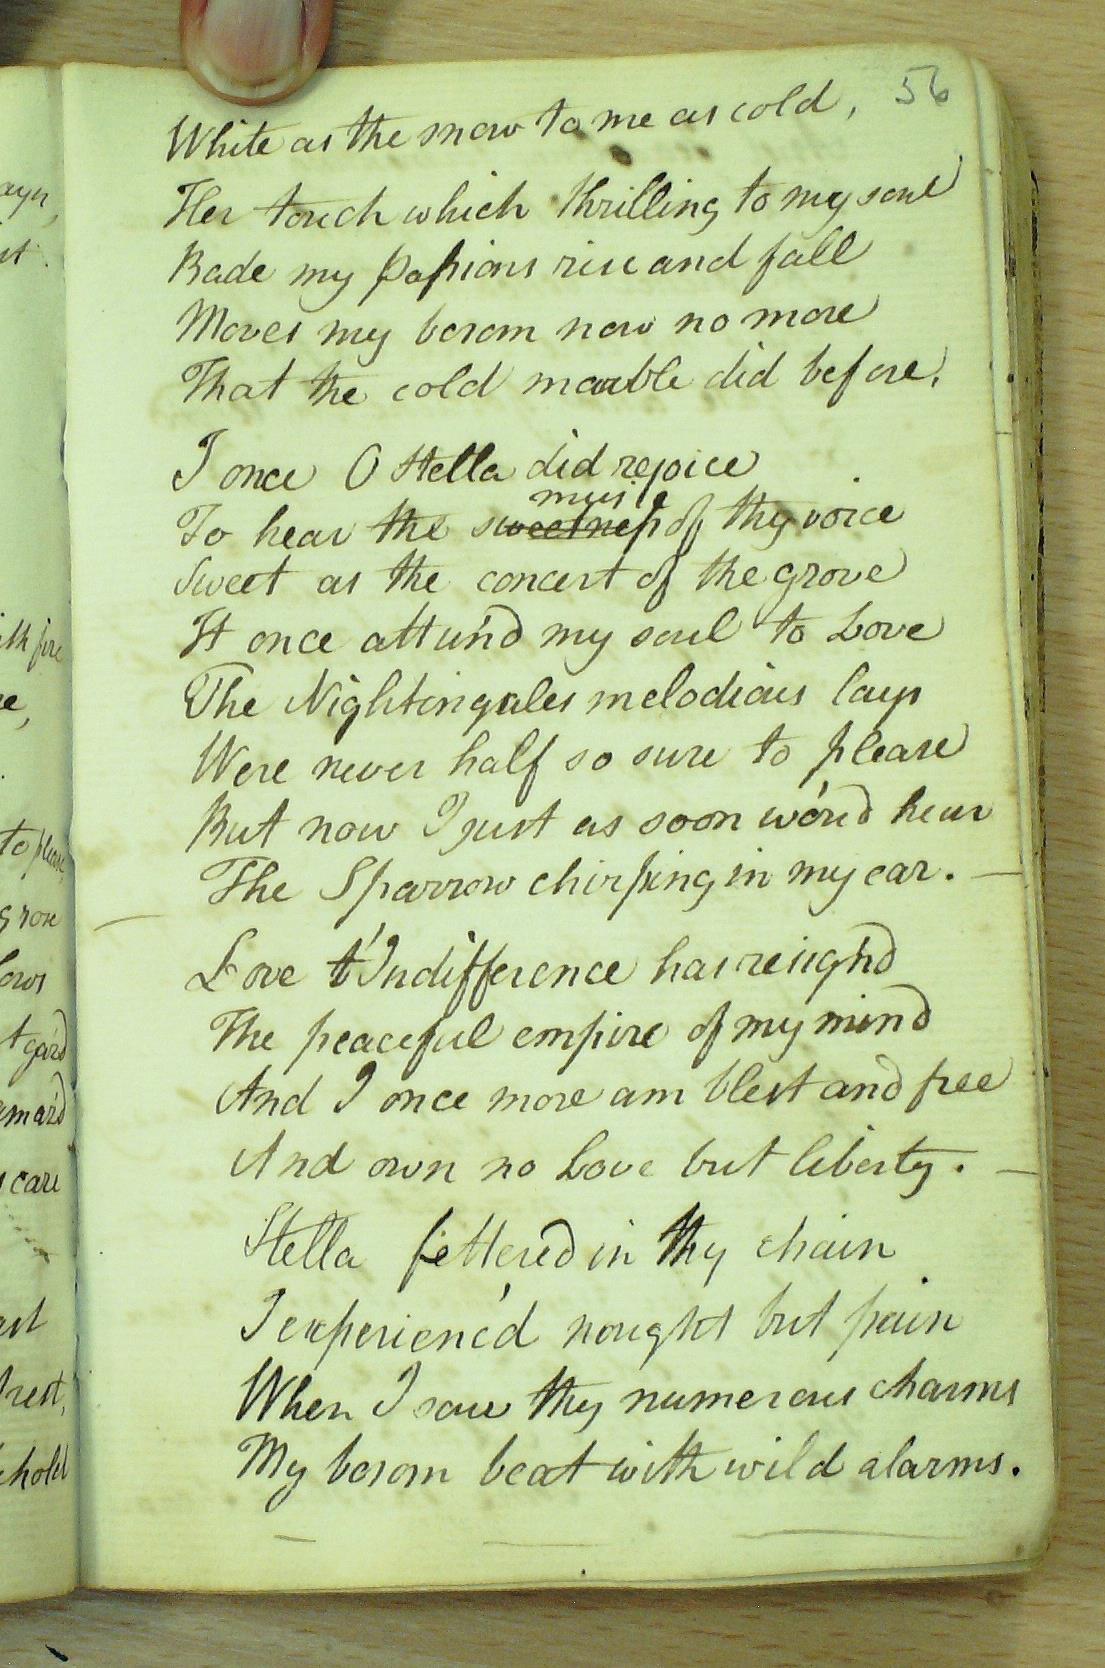 56
White as the snow to me as cold,
Her touch which thrilling to my soul
Bade my passions rise and fall
Moves my bosom now no more
That the cold marble did before.
I once O Stella did rejoice
music
To hear the sweetness of thy voice
Sweet as the concert of the grove
It once attun'd my soul to Love
The Nightingales melodious lays
Were never half so sure to please
But now I just as soon wou'd hear
The Sparrow chirping in my ear. —
Love t'Indifference has resign'd
The peaceful empire of my mind
And I once more am blest and free
And own no Love but liberty. —
Stella fetter'd in thy chain
I experienc'd nought but pain
When I saw thy numerous charms
My bosom beat with wild alarms.